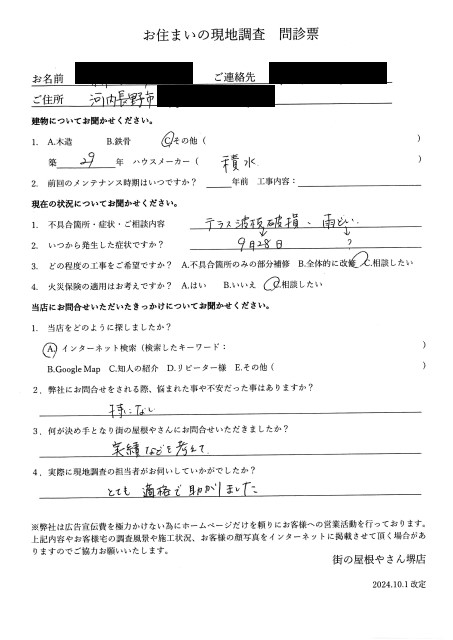 お住まいの現地調査 問診票
お名前 ご連絡先
ご住所 河内長野市
建物についてお聞かせください。
1. A.木造 B.鉄骨 C.その他( )
築 29 年 ハウスメーカー( 積水 )
2. 前回のメンテナンス時期はいつですか? 年前 工事内容:
現在の状況についてお聞かせください。
1. 不具合箇所・症状・ご相談内容 テラス波板破損、雨どい
2. いつから発生した症状ですか? 9月28日 ?
3. どの程度の工事をご希望ですか? A.不具合箇所のみの部分補修 B.全体的に改修 C.相談したい
4. 火災保険の適用はお考えですか? A.はい B.いいえ C.相談したい
当店にお問合せいただいたきっかけについてお聞かせください。
1. 当店をどのように探しましたか?
A. インターネット検索(検索したキーワード: )
B.Google Map C.知人の紹介 D.リピーター様 E.その他( )
2. 弊社にお問合せをされる際、悩まれた事や不安だった事はありますか?
特になし
3. 何が決め手となり街の屋根やさんにお問合せいただきましたか?
実績などを考えて
4. 実際に現地調査の担当者がお伺いしていかがでしたか?
とても 適格で助かりました
※弊社は広告宣伝費を極力かけない為にホームページだけを頼りにお客様への営業活動を行っております。
上記内容やお客様宅の調査風景や施工状況、お客様の顔写真をインターネットに掲載させて頂く場合があ
りますのでご協力お願いいたします。
街の屋根やさん堺店
2024.10.1 改定